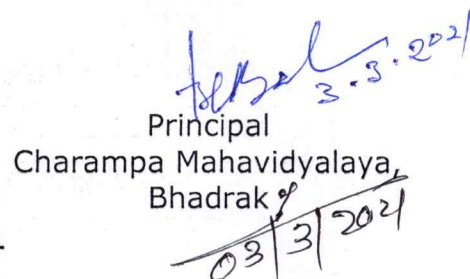 3.3.2021
Principal
Charampa Mahavidyalaya,
Bhadrak
03/3/2021